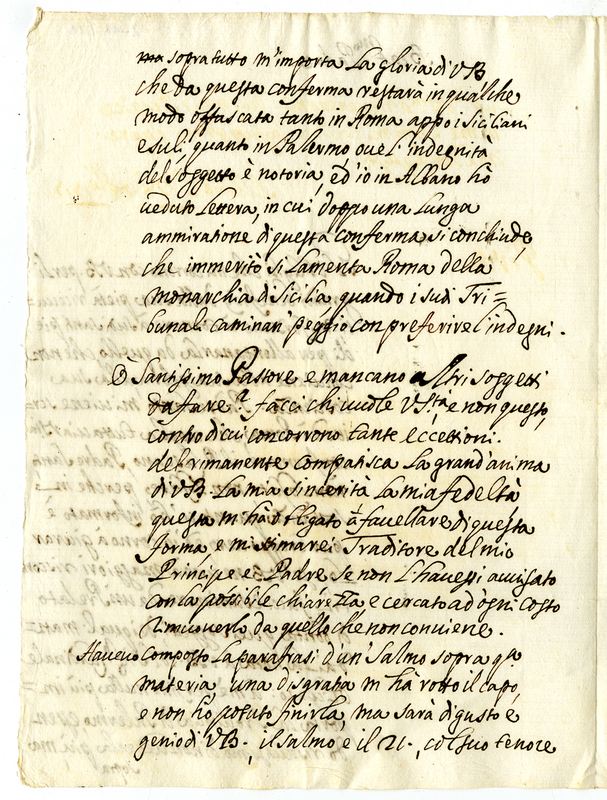 ma sopra tutto m'importa La gloria di VB
che da questa conferma restarà in qualche
modo offuscata tanto in Roma appo i Siciliani
esuli quanto in Palermo ove l'indegnità
del soggetto è notoria, ed io in Albano hò
veduto Lettera, in cui doppo una Lunga
ammiratione di questa conferma si conchiude,
che immeritò si Lamenta Roma della
monarchia di Sicilia quando i suoi Tri=
bunali caminan' peggio con preferire l'indegni.
O Santissimo Pastore e mancano altri soggetti
da fare? facci chi vuole VS.tà e non questo,
contro di cui concorrono tante eccettioni.
del rimanente compatisca La grand'anima
di VB. La mia sincerità La mia fedeltà
questa m'hà obligato à favellare di questa
forma, e mi stimarei Traditore del mio
Principe e Padre se non L'havessi avvisato
con la possibile chiarezza, e cercato ad ogni costo
rimuoverlo da quello che non conviene.
Havevo composto La parafrasi d'un Salmo sopra qta.
materia, una disgratia m'hà rotto il capo,
e non ho potuto finirla, ma sarà di gusto e
genio di VB., il salmo e il 21., col suo tenore